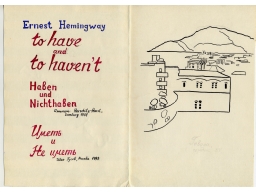 Ernest Hemingway
to have
and
to haven't
Haben
und
Nichthaben
Hamburg
Иметь
и
Не иметь